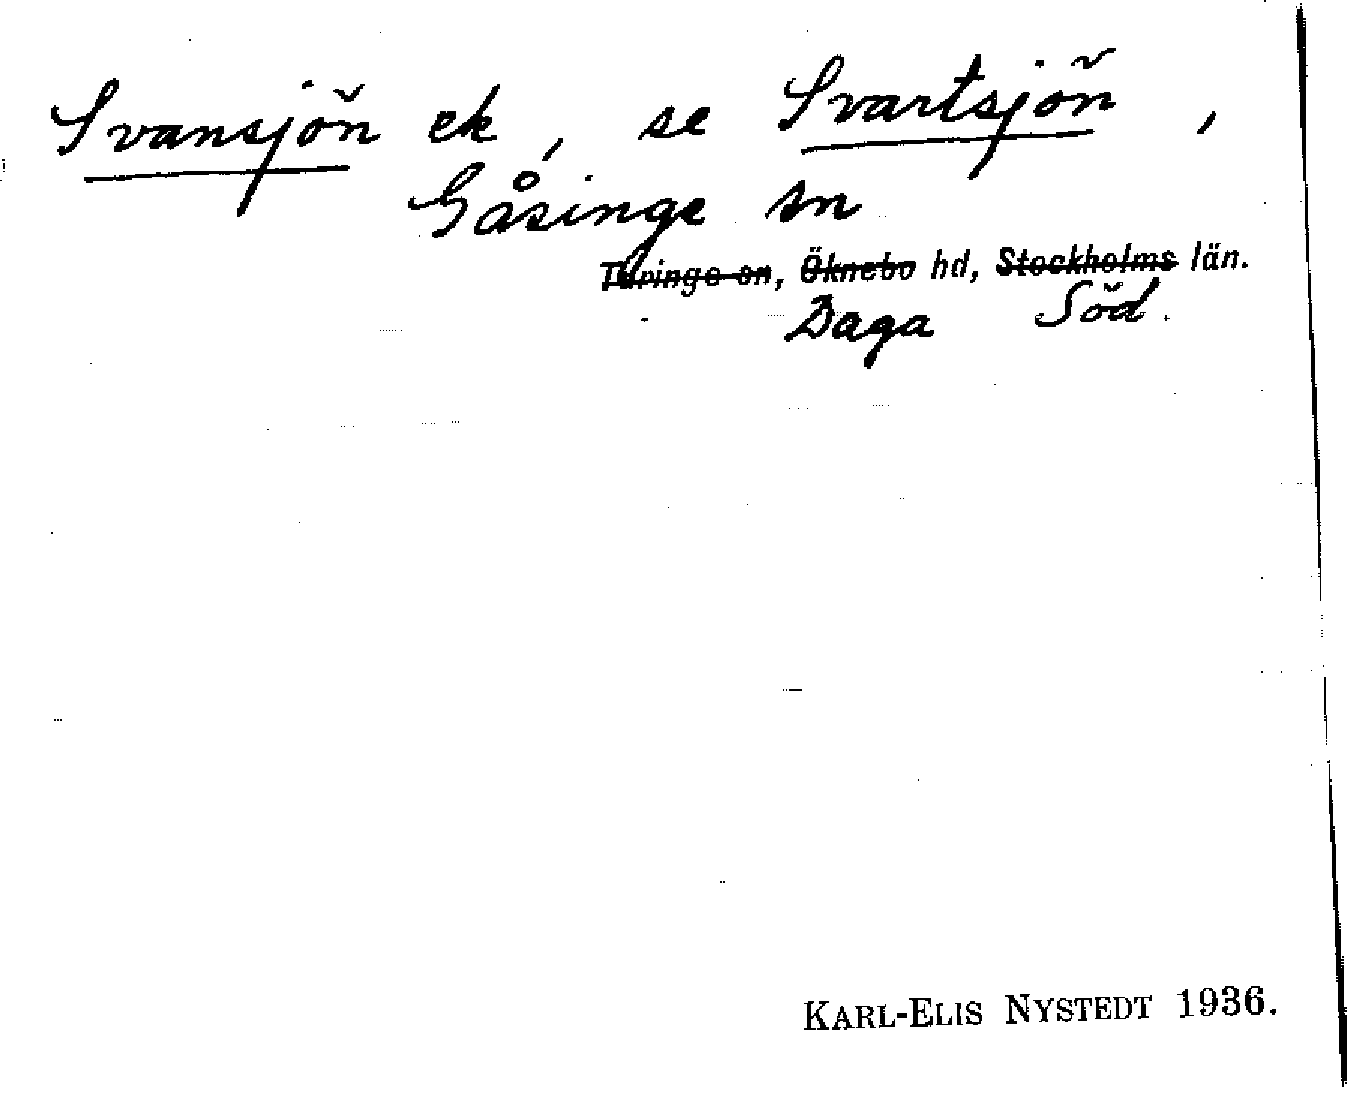 Svansjön ek, se Svartsjön,
Gåsinge sn
Turinge sn, Öknebo hd, Stockholms län.
Daga Söd.
KARL-ELIS NYSTEDT 1936.